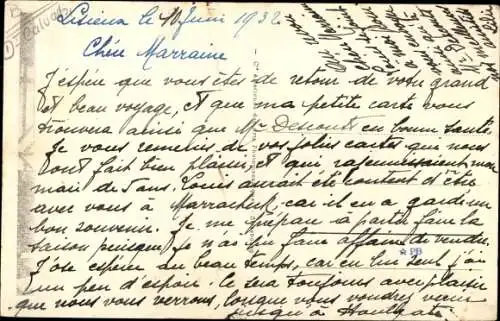 Calvados
Lisieux le 10 Juin 1932
Chère Marraine
J'espère que vous êtes de retour de votre grand
et beau voyage, et que ma petite carte vous
trouvera ainsi que Mr Descourts en bonne santé
Je vous remercie de vos jolies cartes qui nous
ont fait bien plaisir, et qui rajeunissaient mon
mari de 5 ans. Louis aurait été content d'être
avec vous à Marrackech, car il en a gardé un
bon souvenir. Je me prépare à partir faire la
saison puisque je n'ai pu faire affaire de vendre.
J'ose espérer au beau temps, car en lui seul j'ai
un peu d'espoir. Ce sera toujours avec plaisir
que nous vous verrons, lorsque vous voudrez venir
jusqu'à Houlgate.
*PB